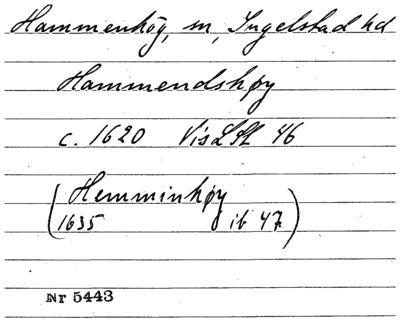 Hammenhög, sn, Ingelstad hd
Hammendshøy
c. 1620 VisLSt 46
(Hemminhøy
1635 ib 47)
Nr 5443